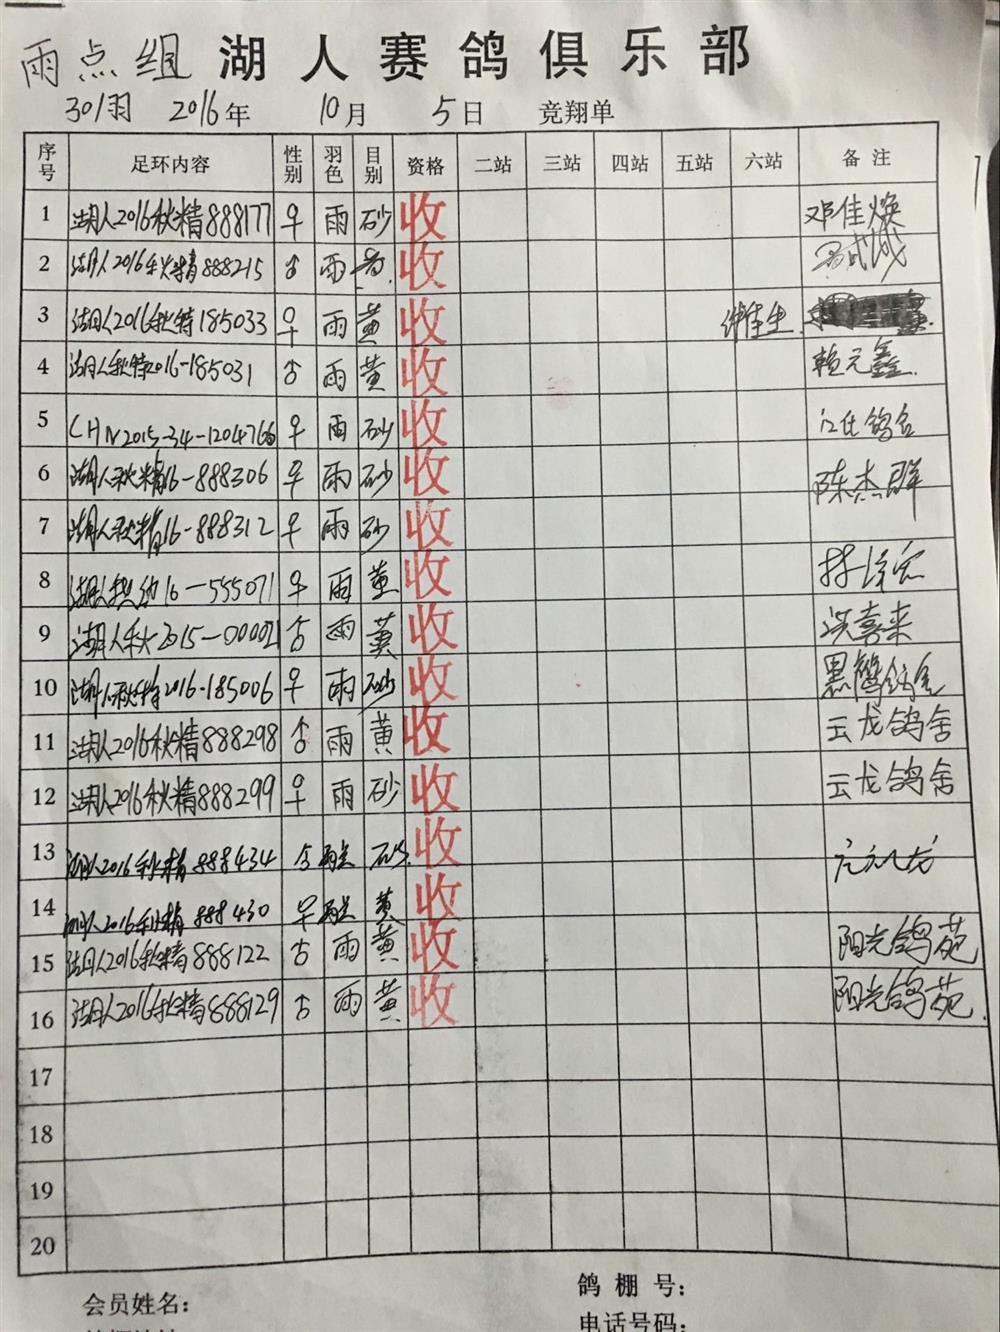 雨点组 湖人赛鸽俱乐部
301羽 2016年 10月 5日 竞翔单
序号 足环内容 性别 羽色 目别 资格 二站 三站 四站 五站 六站 备注
1 湖人2016秋精888177 ♀ 雨 砂 收 邓佳焕
2 湖人2016秋精888215 ♂ 雨 黄 收
3 湖人2016秋特185033 ♀ 雨 黄 收
4 湖人秋特2016-185031 ♂ 雨 黄 收 赖元鑫
5 CHN2015-34-1204766 ♀ 雨 砂 收
6 湖人秋精16-888306 ♀ 雨 砂 收 陈杰群
7 湖人秋精16-888312 ♀ 雨 砂 收
8 湖人 16-555071 ♀ 雨 黄 收
9 湖人秋2015-00002 ♂ 雨 黄 收 冼喜来
10 湖人秋特2016-185006 ♀ 雨 砂 收 黑鹰鸽舍
11 湖人2016秋精888298 ♂ 雨 黄 收 云龙鸽舍
12 湖人2016秋精888299 ♀ 雨 砂 收 云龙鸽舍
13 湖人2016秋精888434 ♂ 砂 收
14 湖人2016秋精888430 ♀ 黄 收
15 湖人2016秋精888122 ♂ 雨 黄 收 阳光鸽苑
16 湖人2016秋精888129 ♂ 雨 黄 收 阳光鸽苑
17
18
19
20
鸽棚号：
会员姓名：
电话号码：